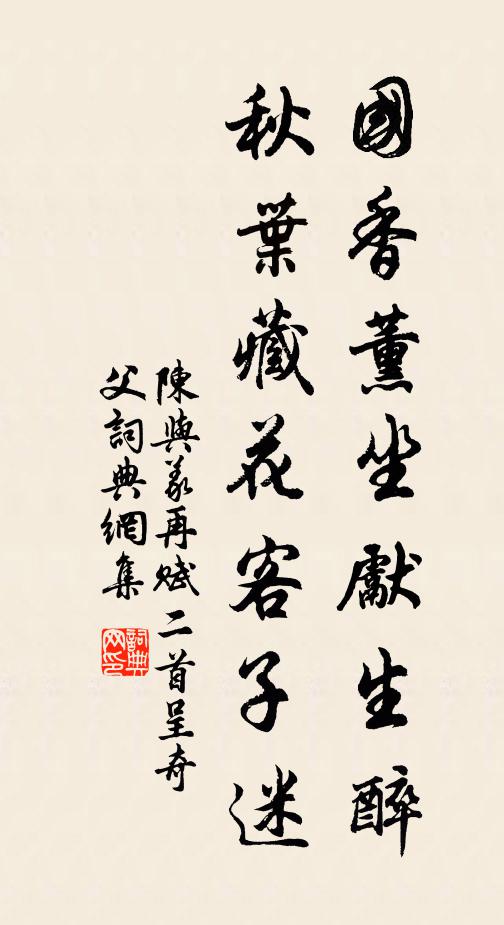 國香薰坐獻生醉
秋葉藏花客子迷
陳與義再賦二首呈奇
父詞典網集
詞典网印